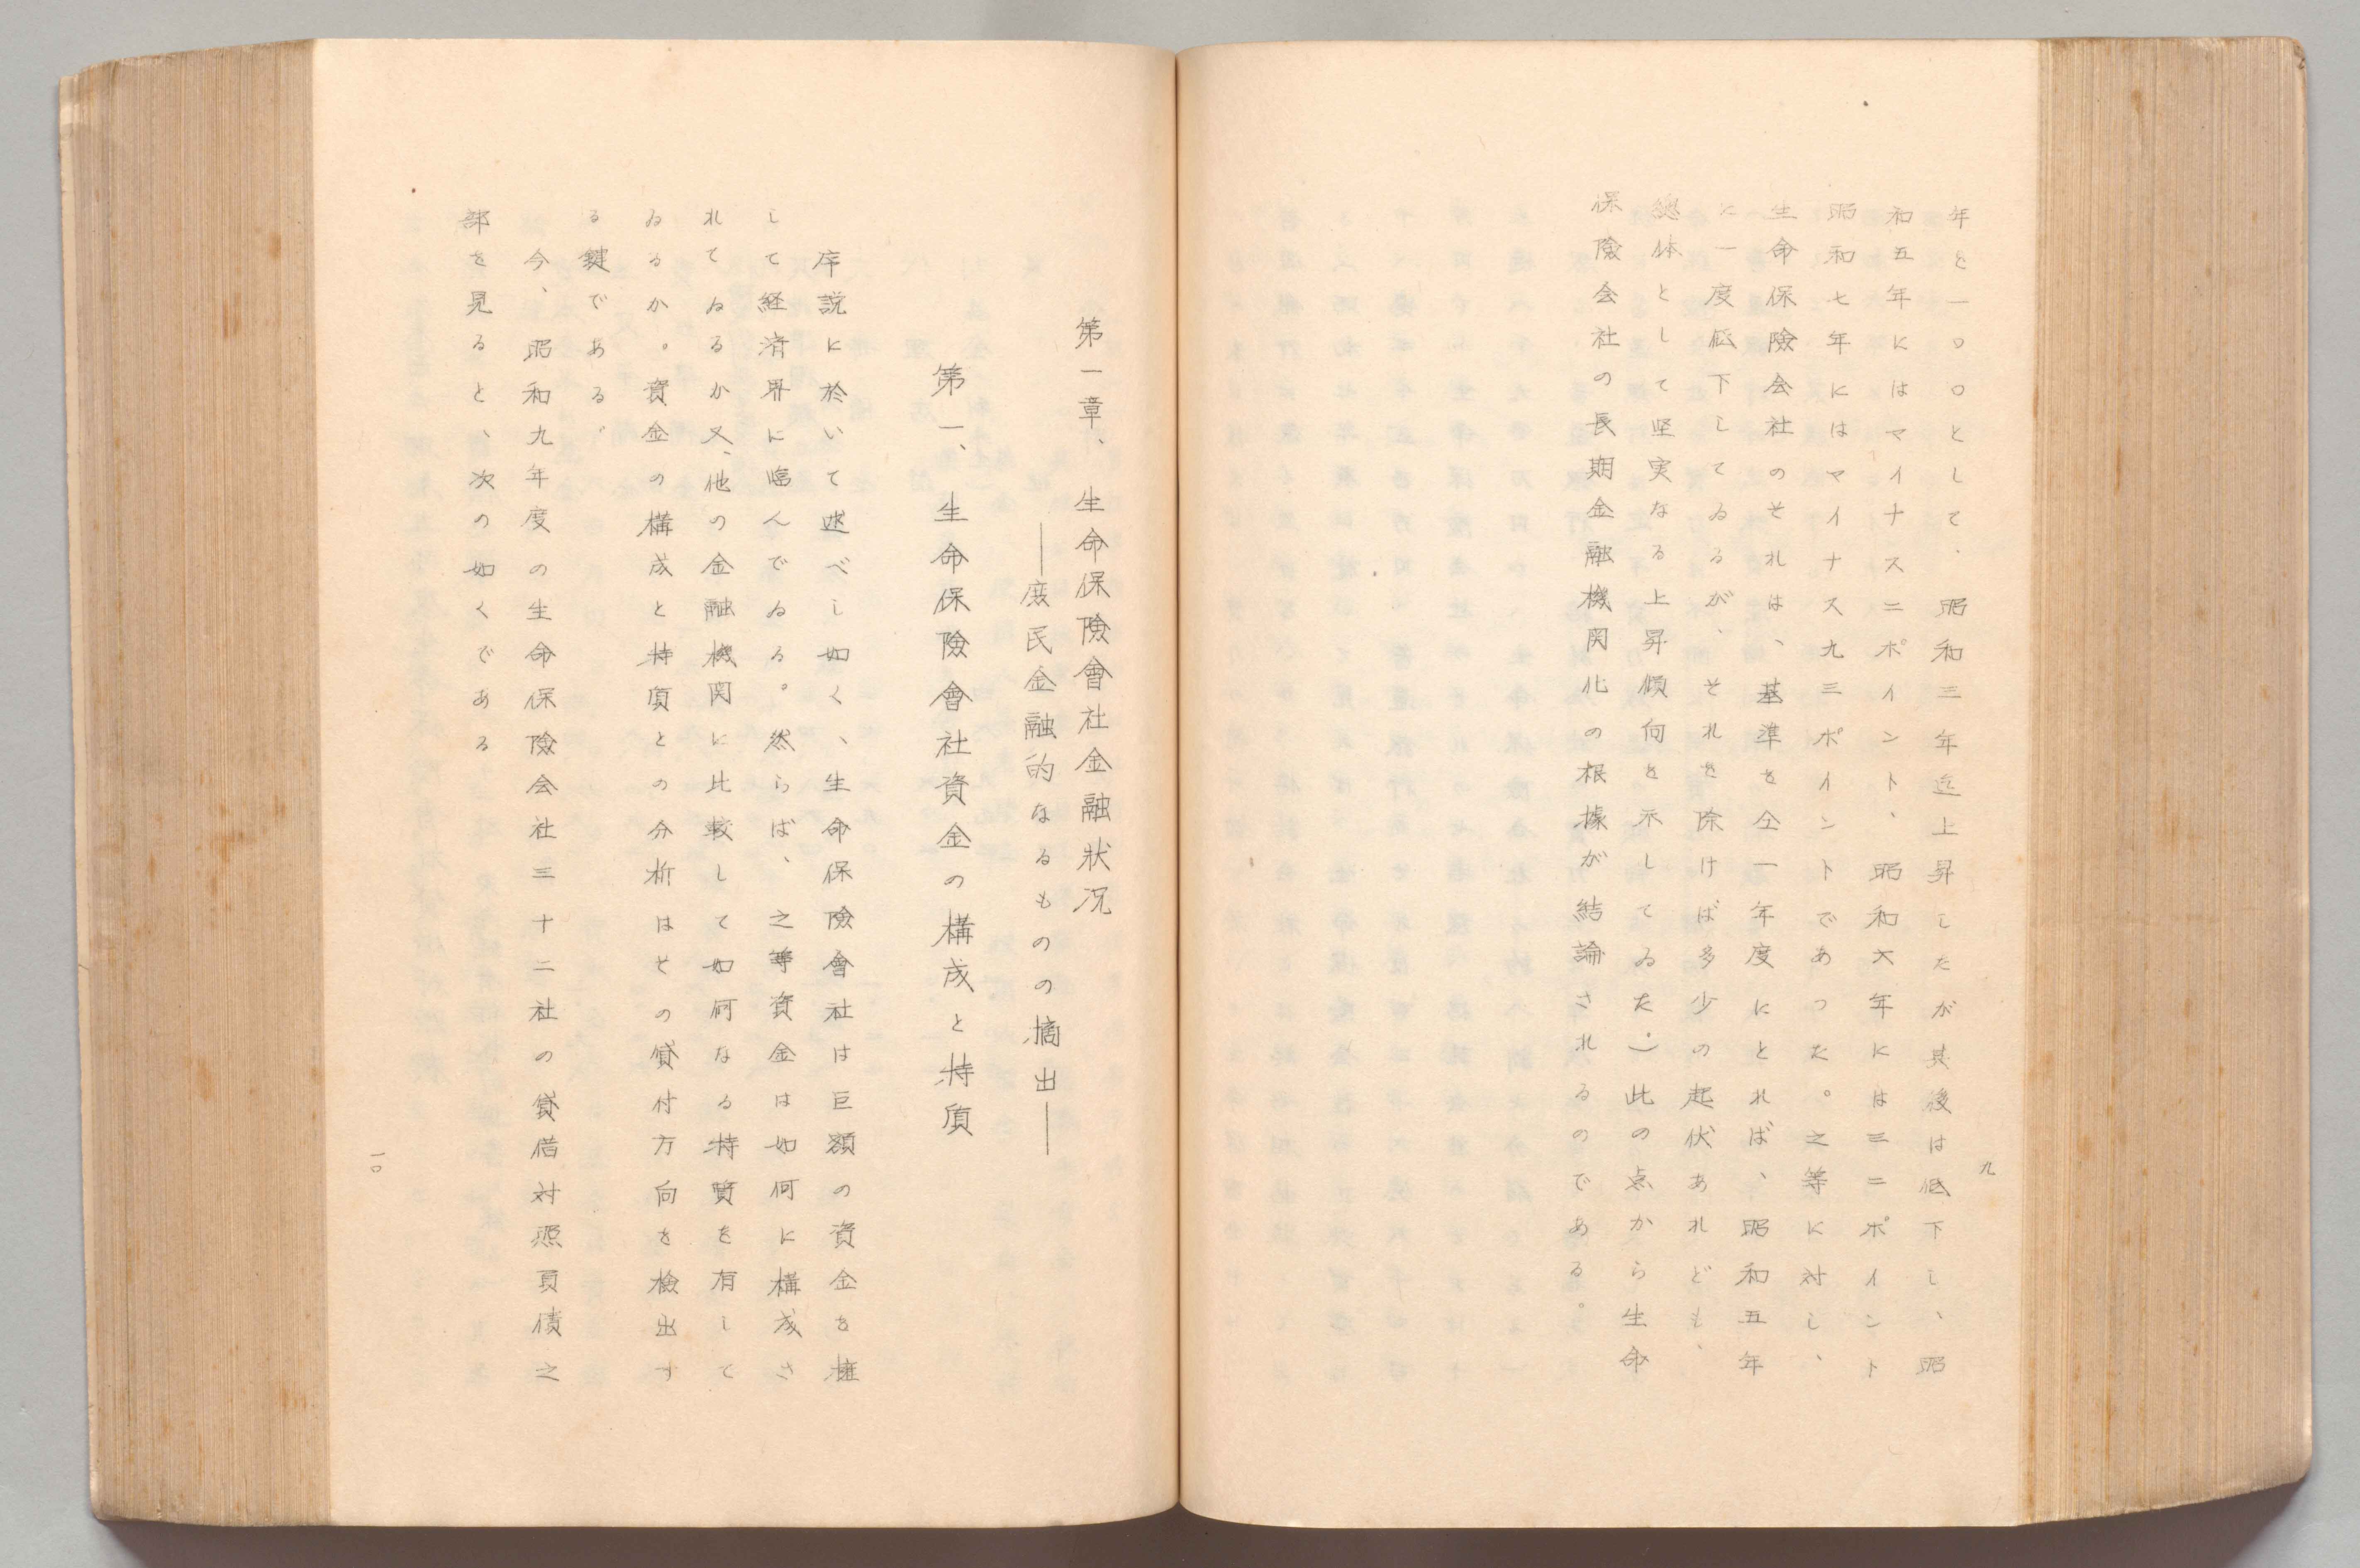 九
年を一〇〇として、昭和三年迄上昇したが其後は低下し、昭
和五年にはマイナス二ポイント、昭和六年には三二ポイント
昭和七年にはマイナス九三ポイントであつた。之等に対し、
生命保險会社のそれは、基準を仝一年度にとれば、昭和五年
に一度低下してゐるが、それを除けば多少の起伏あれども、
總体として坚実なる上昇傾向を示してゐた。)此の点から生命
保險会社の長期金融機関化の根據が結論されるのである。
第一章、生命保險會社金融状況
——庶民金融的なるものの摘出——
第一、生命保險會社資金の構成と特質
序説に於いて述べし如く、生命保險會社は巨額の資金を擁
して経済界に臨んでゐる。然らば、之等資金は如何に構成さ
れてゐるか又、他の金融機関に比較して如何なる特質を有して
ゐるか。資金の構成と特質との分析はその貸付方向を檢出す
る鍵である。
今、昭和九年度の生命保險会社三十二社の貸借対照頁債之
部を見ると、次の如くである
一〇